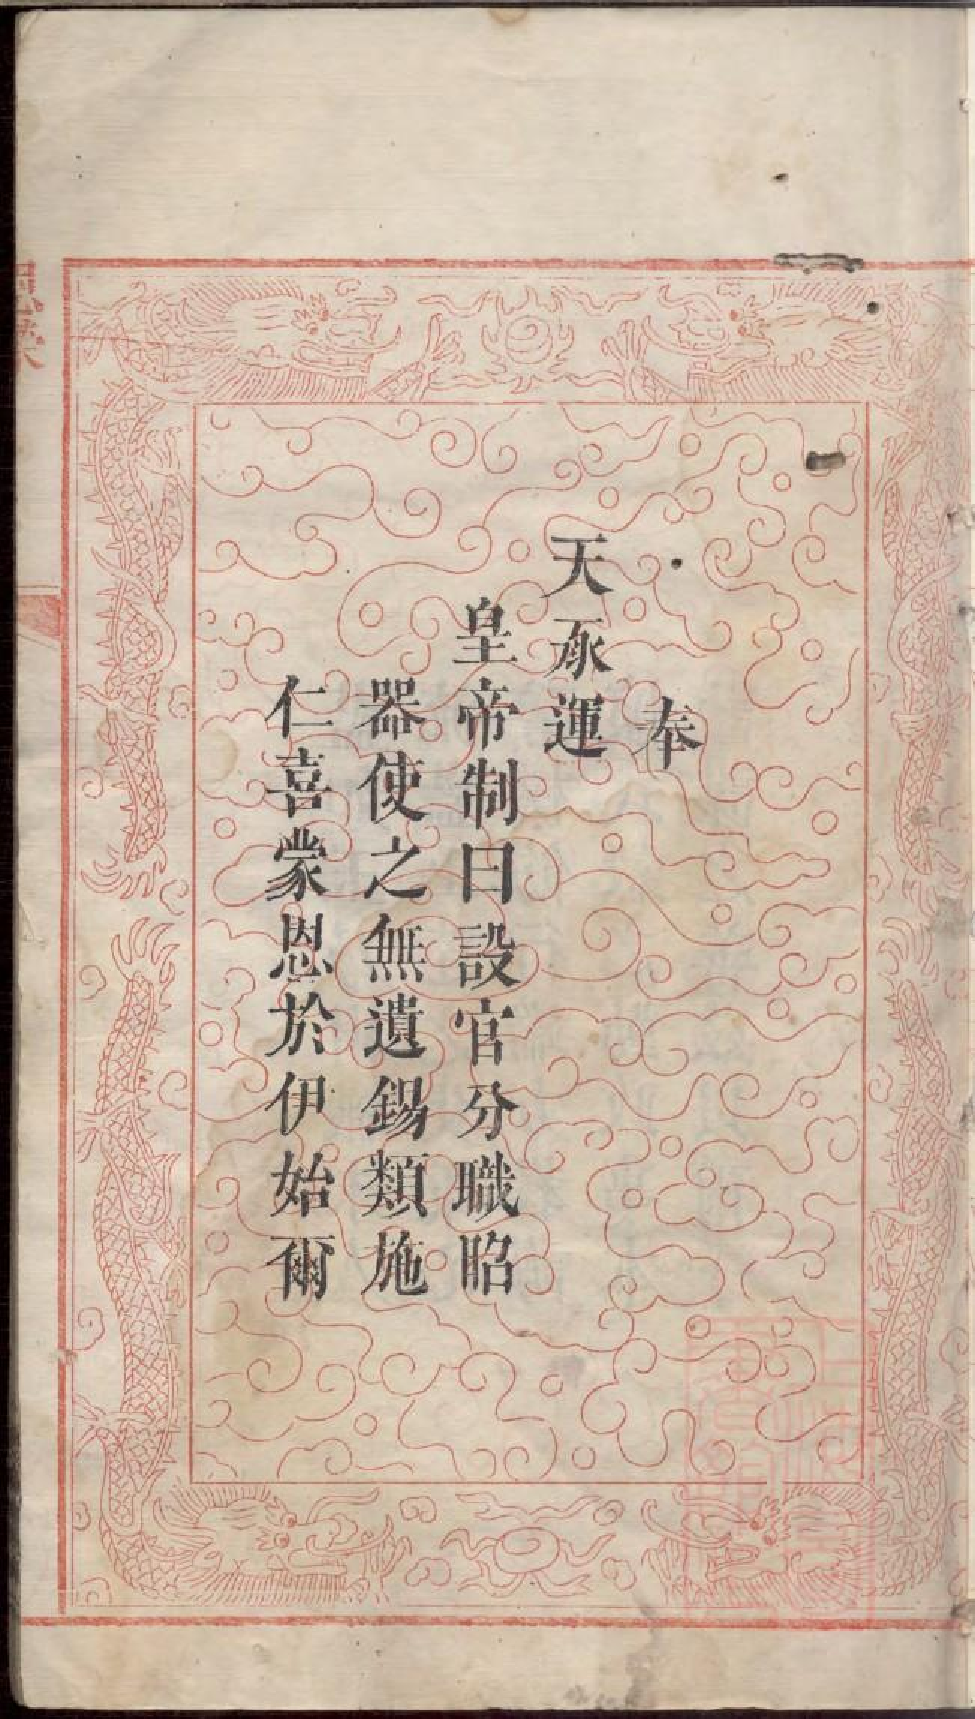 奉
天承運
皇帝制曰設官分職昭
器使之無遺錫類施
仁喜蒙恩於伊始爾